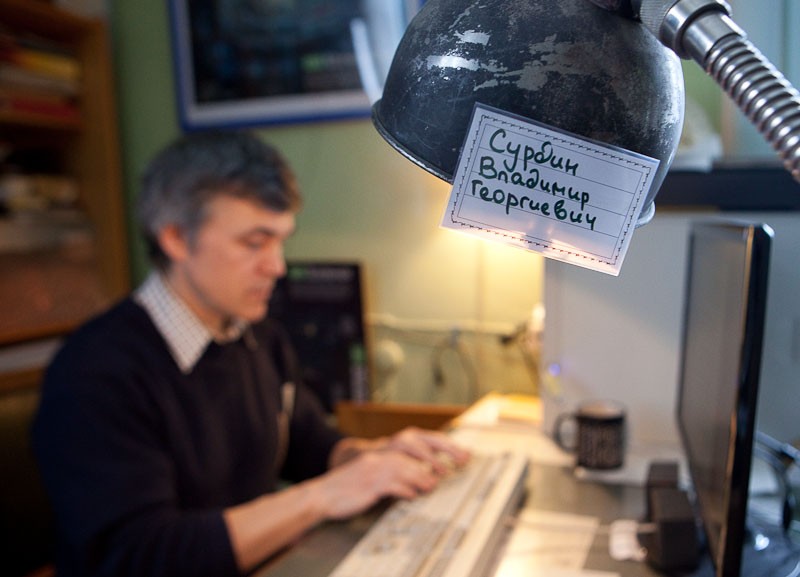 Сурдин
Владимир
Георгиевич